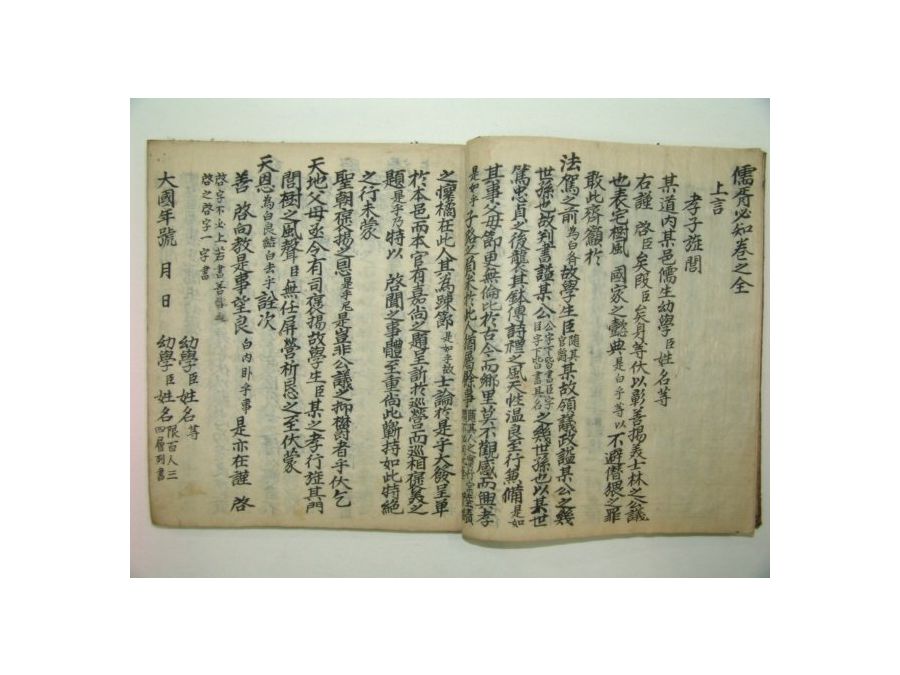 儒胥必知卷之全
上言
孝子旌閭
某道內某邑儒生幼學臣姓名等
右謹 啓臣矣段臣矣身等伏以彰善揚義士林之公議
也表宅樹風 國家之懿典是白乎等以不避僭猥之罪
敢此齊籲於
法駕之前爲白齊故學生臣隨其官爵某故領議政謚某公之幾
世孫也故判書謚某公公字下皆書臣字目字下皆書具名之幾世孫也以某世
篤忠貞之後襲其鉢傳詩禮之風天性溫良至行兼備是如
其事父母節更無倫比於古今而鄉里莫不觀感而興孝
之壞橘在此人其爲疎節是如乎故士論於是乎大發呈單
於本邑而本官有嘉尚之題呈訴於巡營而巡相褒美之
題是乎乃特以 啓聞之事體至重尚此蘄持如此特絕
之行未蒙
聖朝褒揚之恩是乎尼是豈非公議之抑欝者乎伏乞
天地父母亟令有司褒揚故學生臣某之孝行旌其門
閭樹之風聲臣無任屏營祈恳之至伏蒙
天恩爲白良結白去乎詮次
善 啓向教是事望良白內卧乎事是亦在謹 啓
啓字不必上若書善啓
啓之啓字一字書
大國年號 月 日 幼學臣姓名等
幼學臣姓名限百人三四層列書